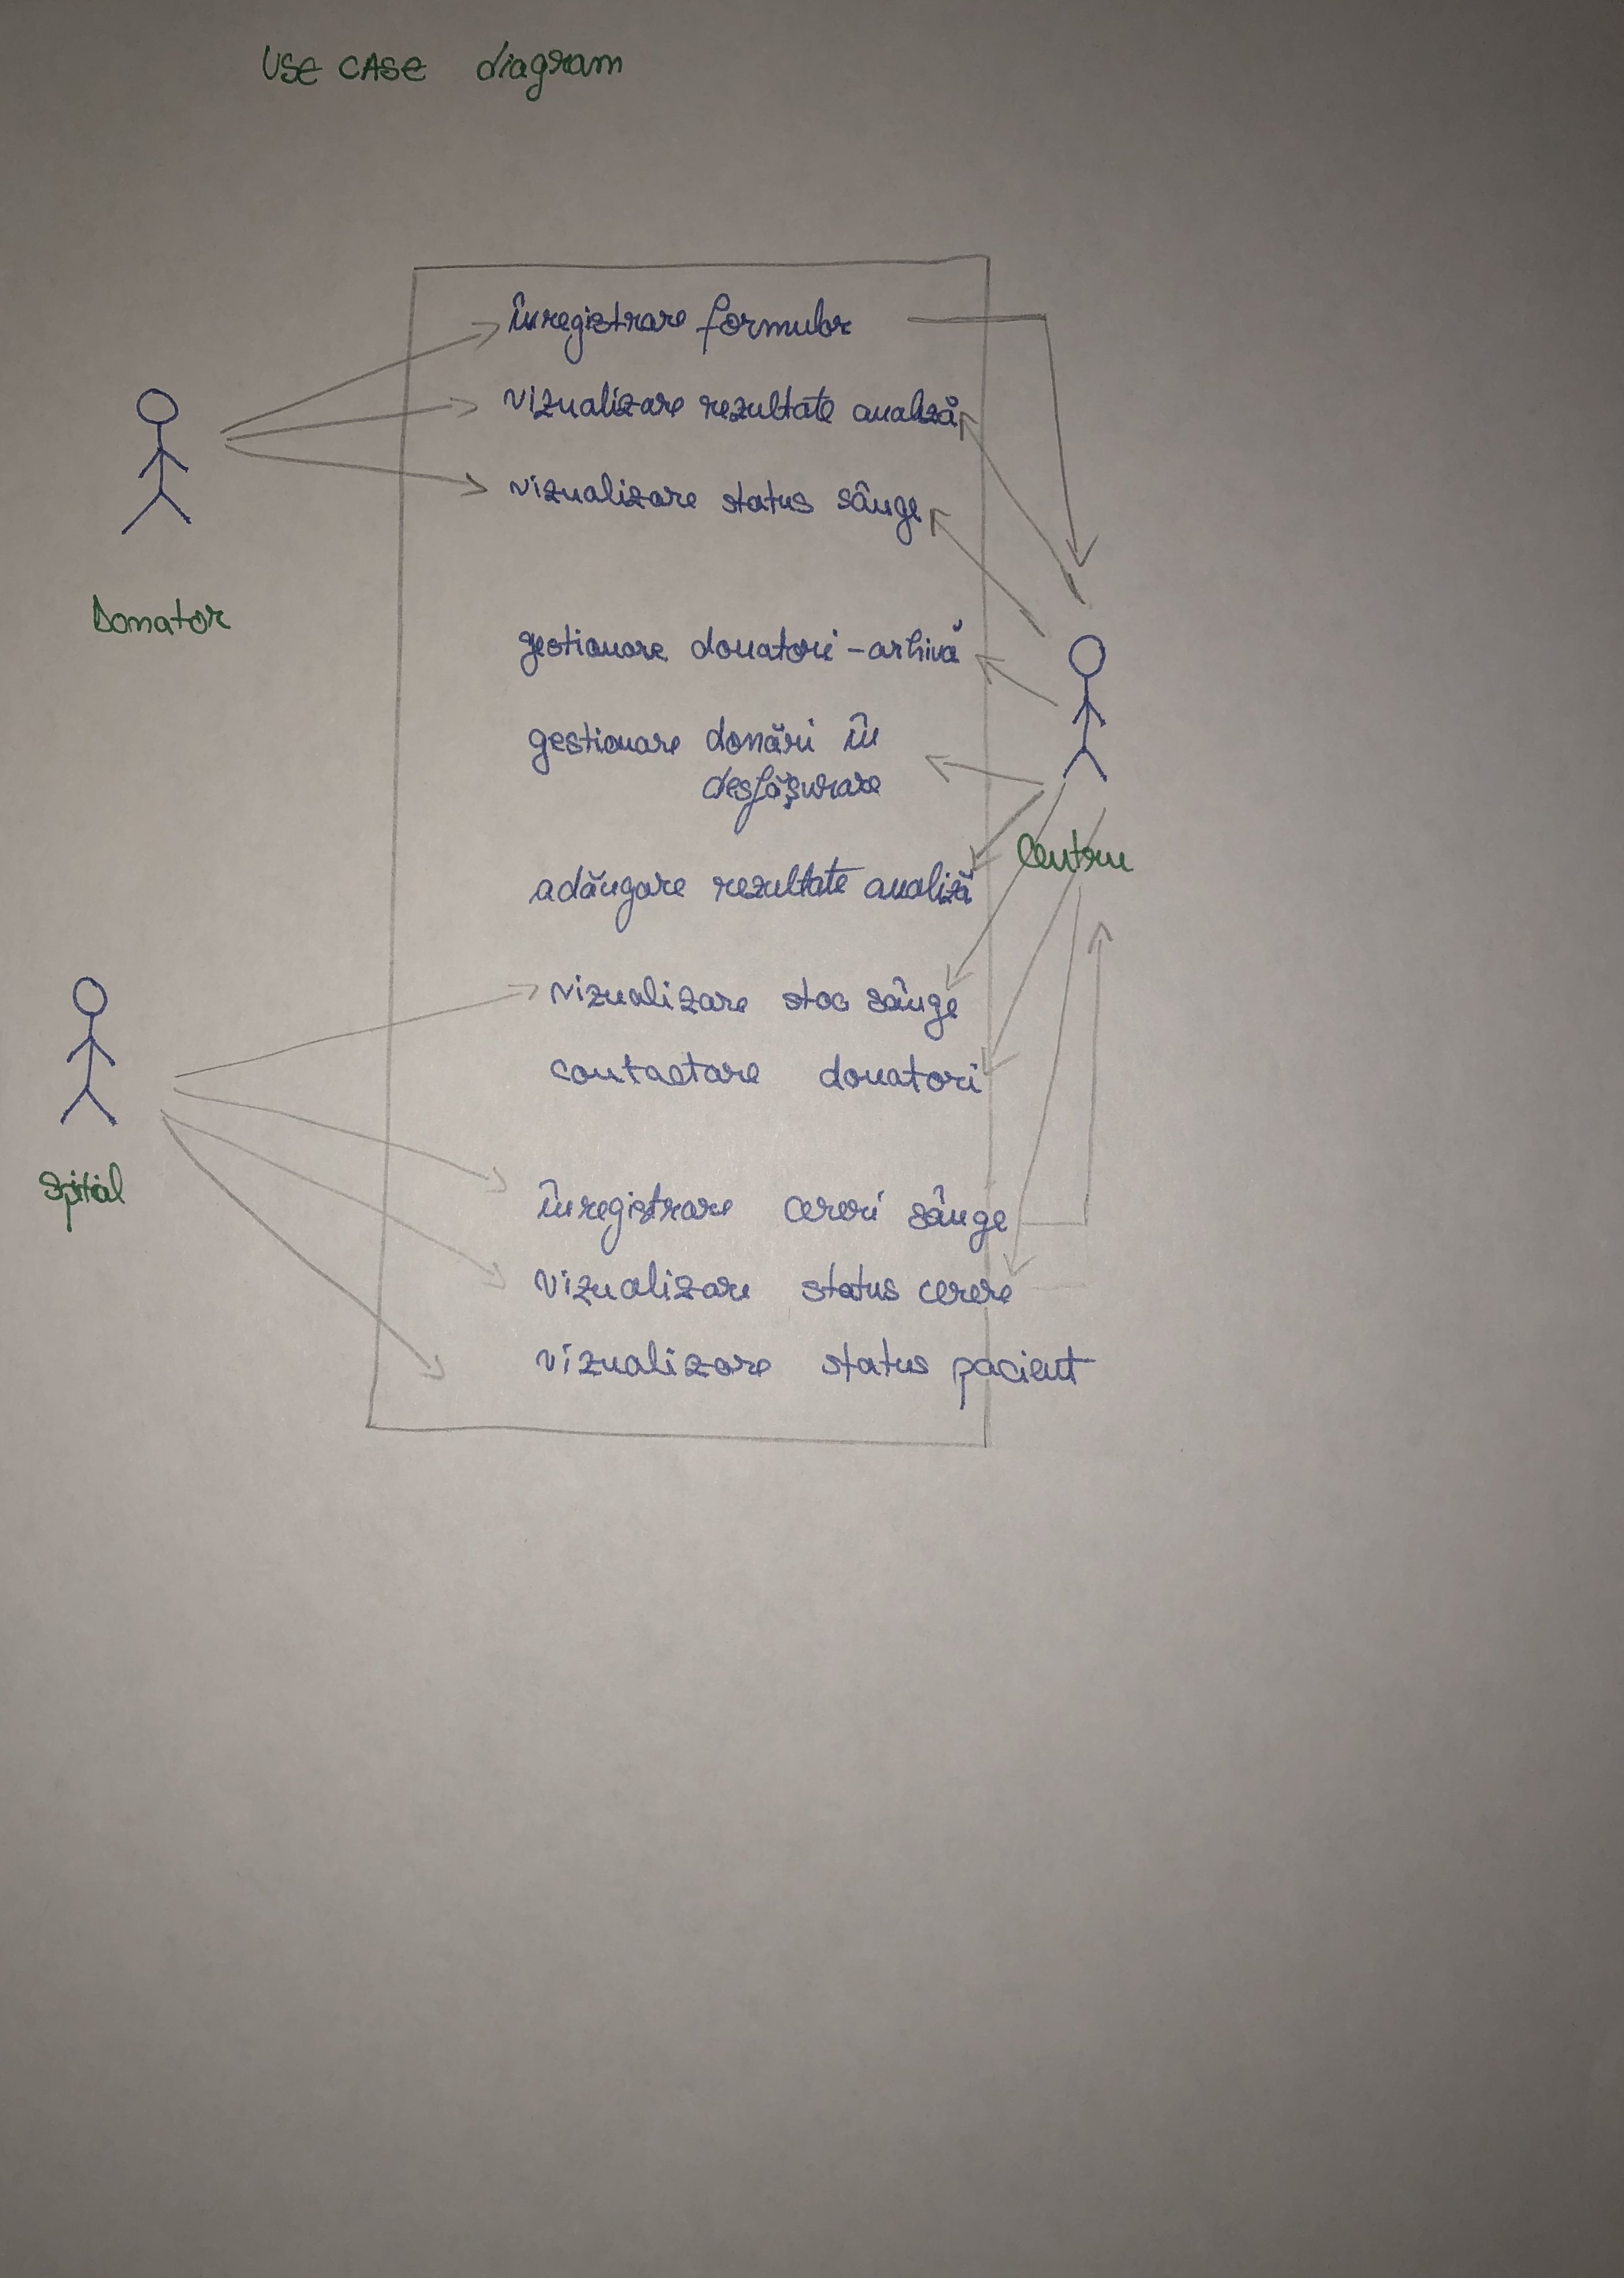 USE CASE diagram
înregistrare formular
vizualizare rezultate analiză
vizualizare status sânge
Donator
gestionare donatori - arhivă
gestionare donări în
desfășurare
Centru
adăugare rezultate analiză
vizualizare stoc sânge
contactare donatori
Spital
înregistrare cereri sânge
vizualizare status cerere
vizualizare status pacient